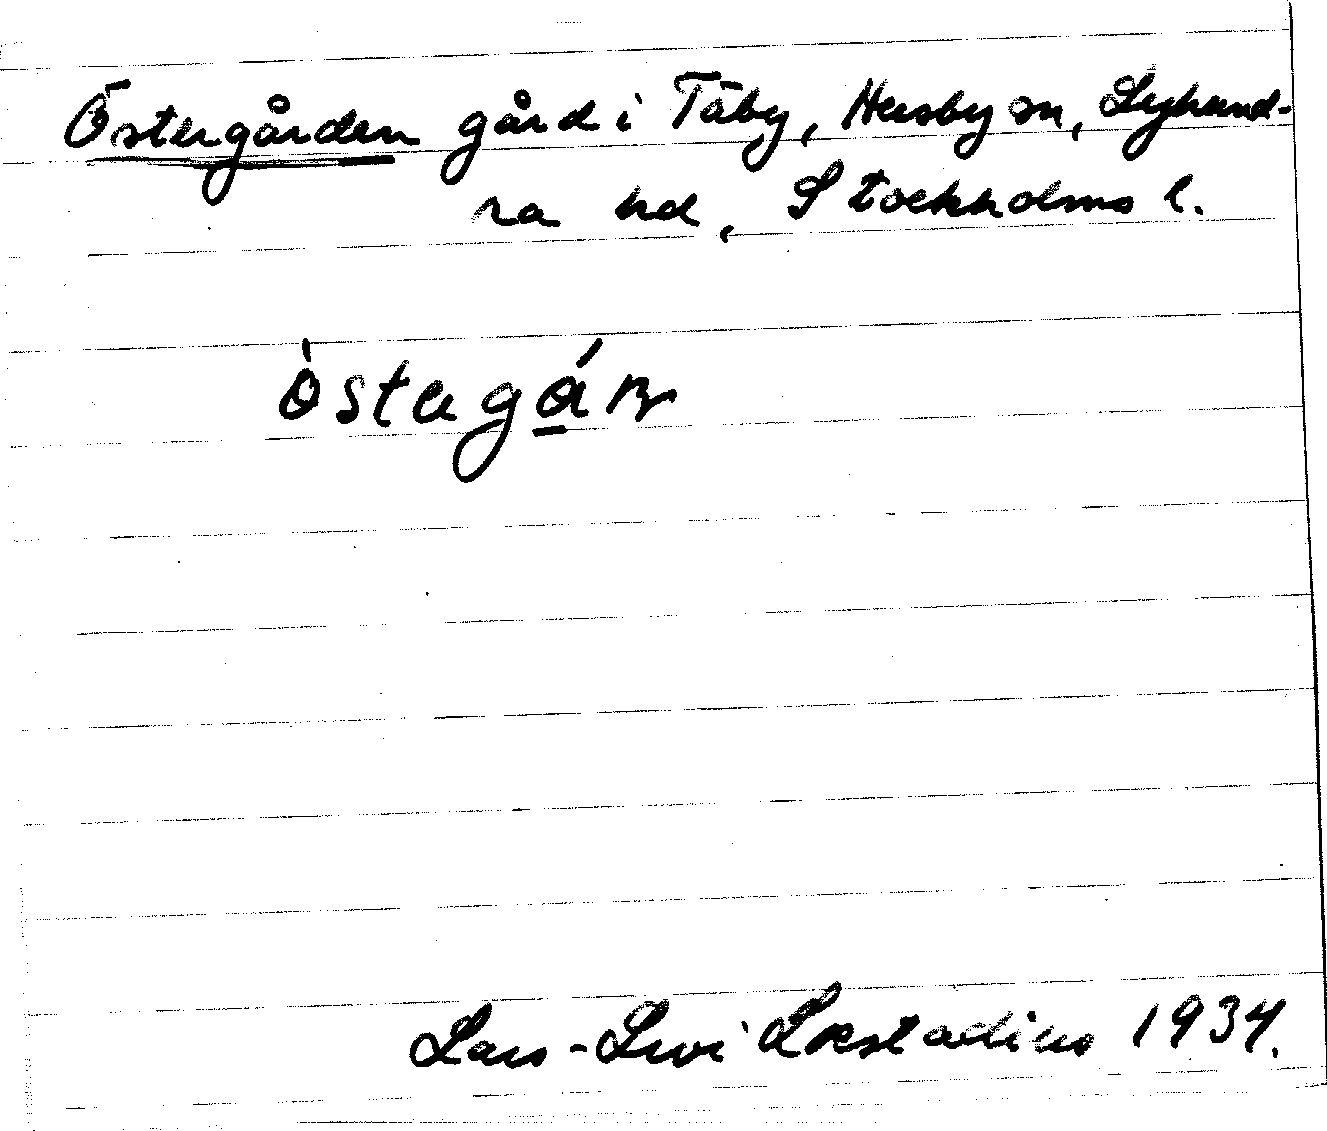 Östergården gård i Täby, Husby sn, Lyhund-
ra hd, Stockholms l.
òstegán
Lars-Levi Læstadius 1934.